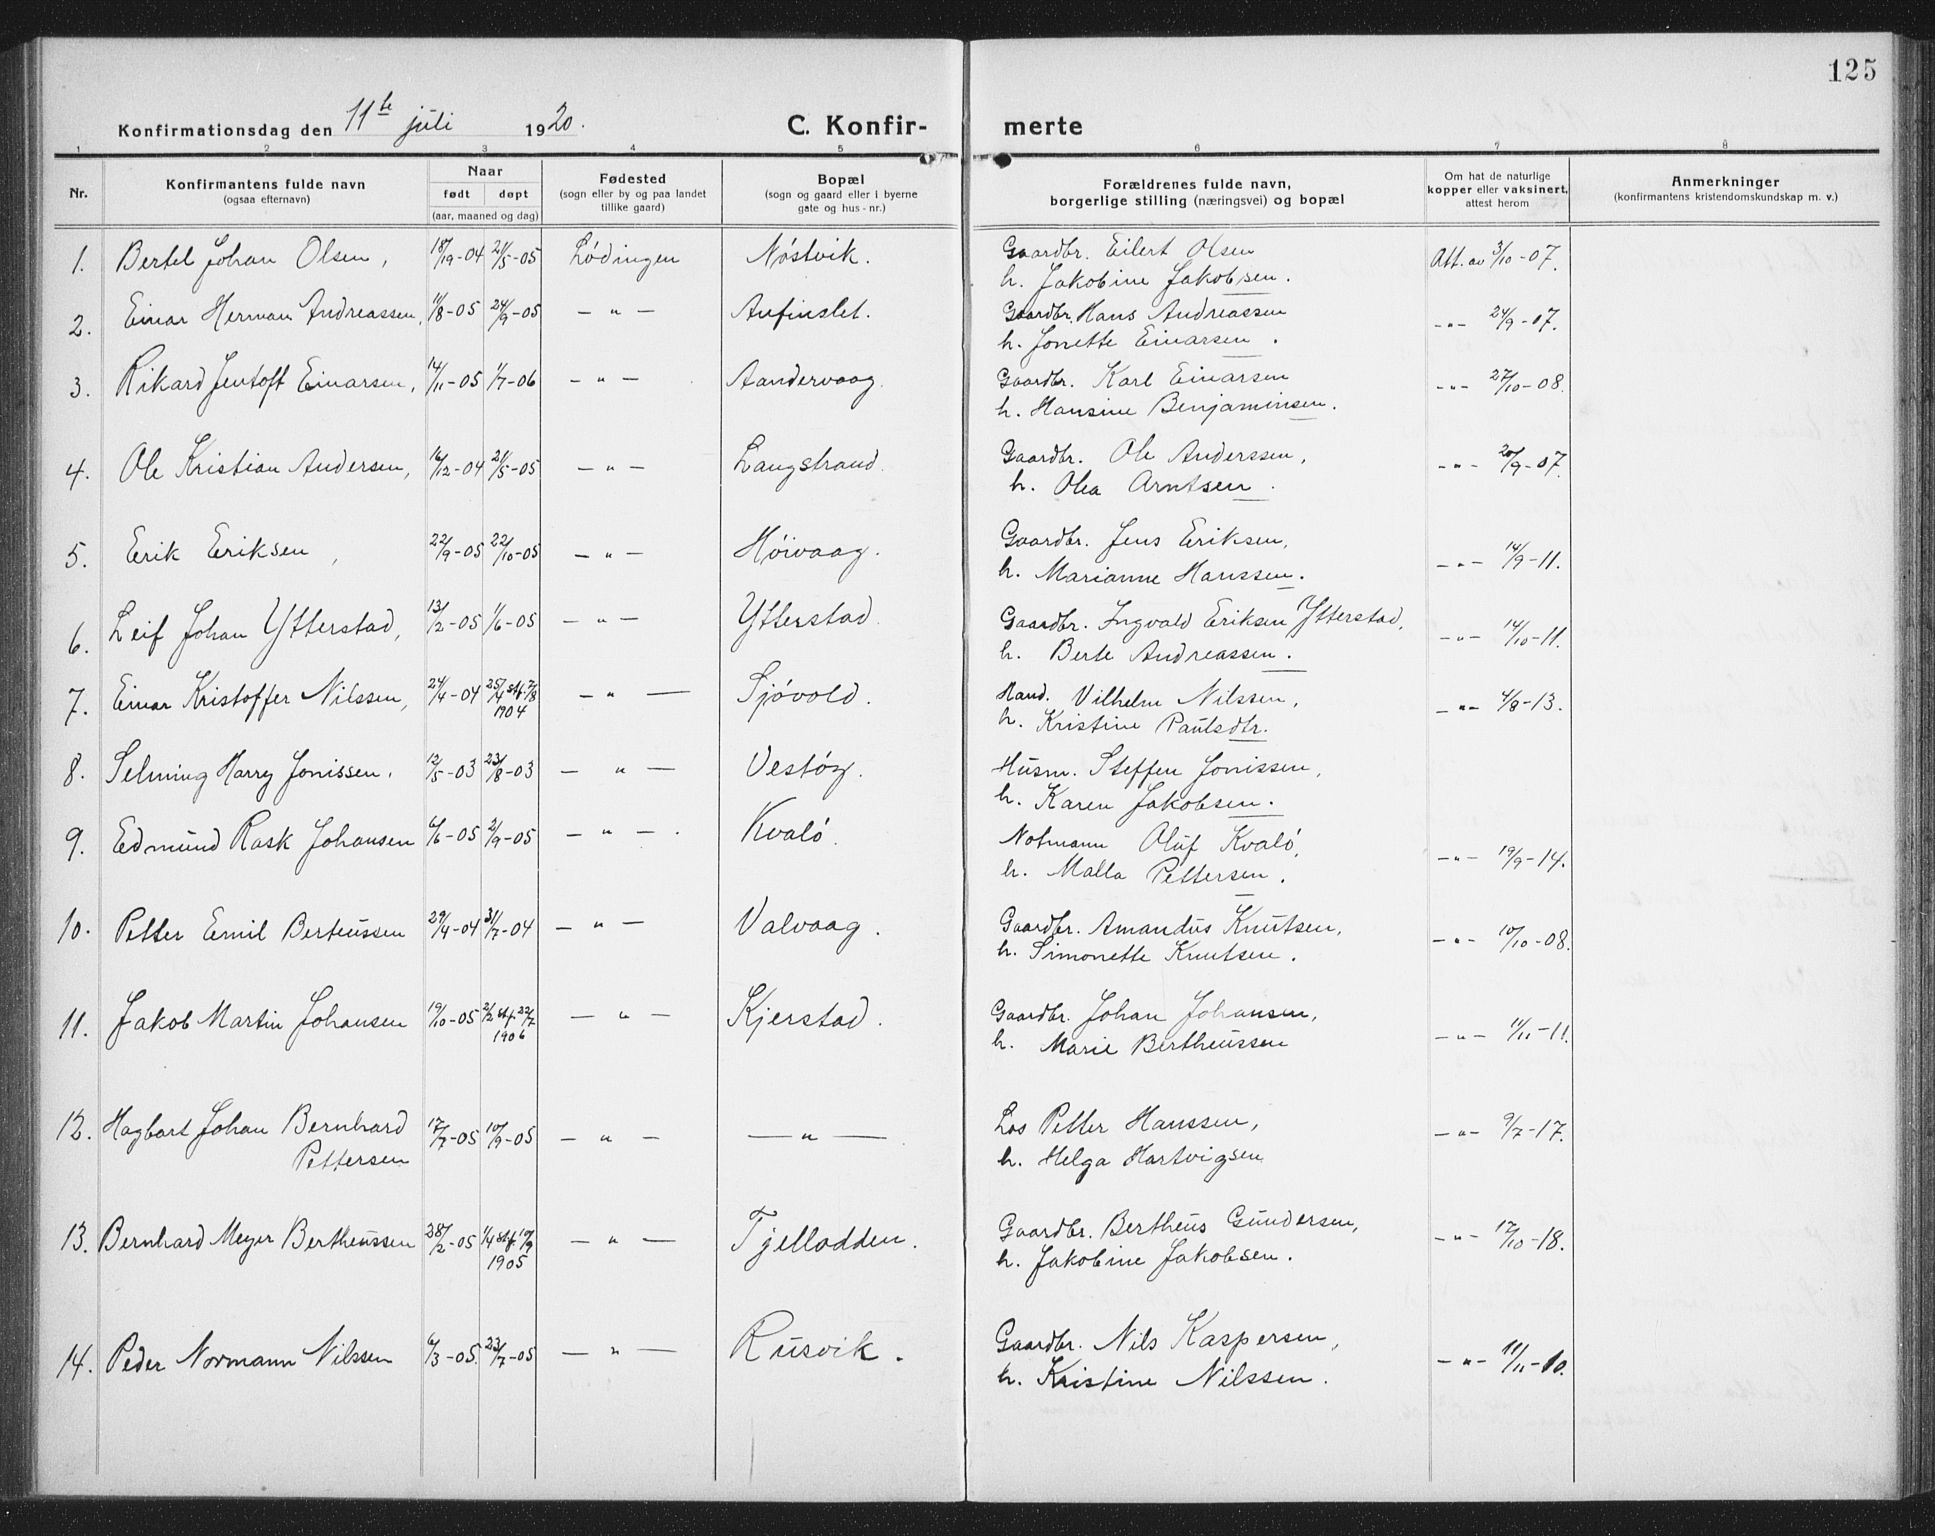 125
Konfirmationsdag den 11te juli 1920. C. Konfir- merte
1 2 3 4 5 6 7 8
Nr. Konfirmantens fulde navn (ogsaa efternavn) Naar født døpt (aar, maaned og dag) Fødested (sogn eller by og paa landet tillike gaard) Bopæl (sogn og gaard eller i byerne gate og hus-nr.) Forældrenes fulde navn, borgerlige stilling (næringsvei) og bopæl Om hat de naturlige kopper eller vaksinert, attest herom Anmerkninger (konfirmantens kristendomskundskap m. v.)
1. Bertel Johan Olsen, 18/19-04 21/5-05 Lódingen Nøstvik. Gaardbr. Eilert Olsen Att. av 3/10-07.
h. Jakobine Jakobsen.
2. Einar Herman Andreassen, 11/8-05 24/9-05 - " - Anfinslet. Gaardbr. Hans Andreassen - " - 24/9-07.
h. Jonette Einarsen.
3. Rikard Jentoft Einarsen, 14/11-05 1/7-06 - " - Aandervaag. Gaardbr. Karl Einarsen - " - 27/10-08.
h. Hansine Benjaminsen.
4. Ole Kristian Andersen, 16/12-04 21/5-05 - " - Langstrand. Gaardbr. Ole Anderssen, - " - 20/9-07.
h. Olea Arntsen.
5. Erik Eriksen, 22/9-05 22/10-05 - " - Høivaag. Gaardbr. Jens Eriksen, - " - 14/9-11.
h. Marianne Hanssen.
6. Leif Johan Ytterstad, 13/2-05 1/6-05 - " - Ytterstad. Gaardbr. Ingvald Eriksen Ytterstad, - " - 14/10-11.
h. Berte Andreassen.
7. Einar Kristoffer Nilssen, 24/4-04 25/4 stf. 7/8 1904 - " - Sjóvold. Hand. Vilhelm Nilssen, - " - 4/8-13.
h. Kristine Paulsdtr.
8. Selming Harry Jonissen. 12/5-03 23/8-03 - " - Vestøy. Husm. Steffen Jonissen,
h. Karen Jakobsen.
9. Edmund Rask Johansen 6/6-05 2/9-05 - " - Kvaló. Notmann Oluf Kvaló, - " - 19/9-14.
h. Malla Pettersen.
10. Petter Emil Berteussen 29/4-04 31/7-04 - " - Valvaag. Gaardbr. Amandus Knutsen, - " - 10/10-08.
h. Simonette Knutsen.
11. Jakob Martin Johansen 19/10-05 2/2 stf. 22/7 1906 - " - Kjerstad. Gaardbr. Johan Johansen, - " - 11/11-11.
h. Marie Bertheussen
12. Hagbart Johan Bernhard Pettersen 17/7-05 10/9-05 - " - - " - Los Petter Hanssen, - " - 9/7-17.
h. Helga Hartvigsen
13. Bernhard Meyer Bertheussen 28/2-05 1/4 stf. 10/9 1905 - " - Tjellodden. Gaardbr. Bertheus Gundersen, - " - 12/10-18.
h. Jakobine Jakobsen.
14. Peder Normann Nilssen 6/3-05. 23/7-05 - " - Rusvik. Gaardbr. Nils Kaspersen, - " - 11/11-10.
h. Kristine Nilssen.